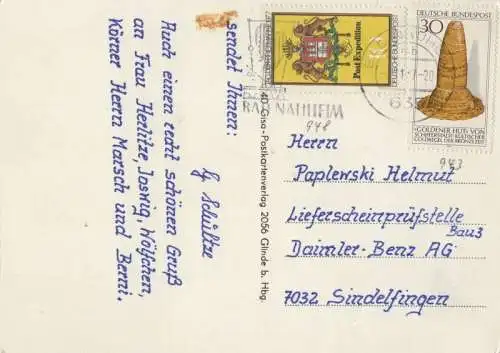 sendet Ihnen:
Auch einen recht schönen Gruß
an Frau Herlitze, Joswig, Wölfchen,
Körner Herrn Marsch und Berni.
4D Gisa-Postkartenverlag 2056 Glinde b. Hbg.
DEUTSCHE BUNDESPOST
Post Expedition
DEUTSCHE BUNDESPOST
30
GOLDENER HUT VON
SCHIFFERSTADT-KULTISCHER
GOLDKEGEL DER BRONZEZEIT
BAD NAUHEIM
948
943
Herrn
Paplewski Helmut
Lieferscheinprüfstelle
Bau 3
Daimler-Benz AG
7032 Sindelfingen